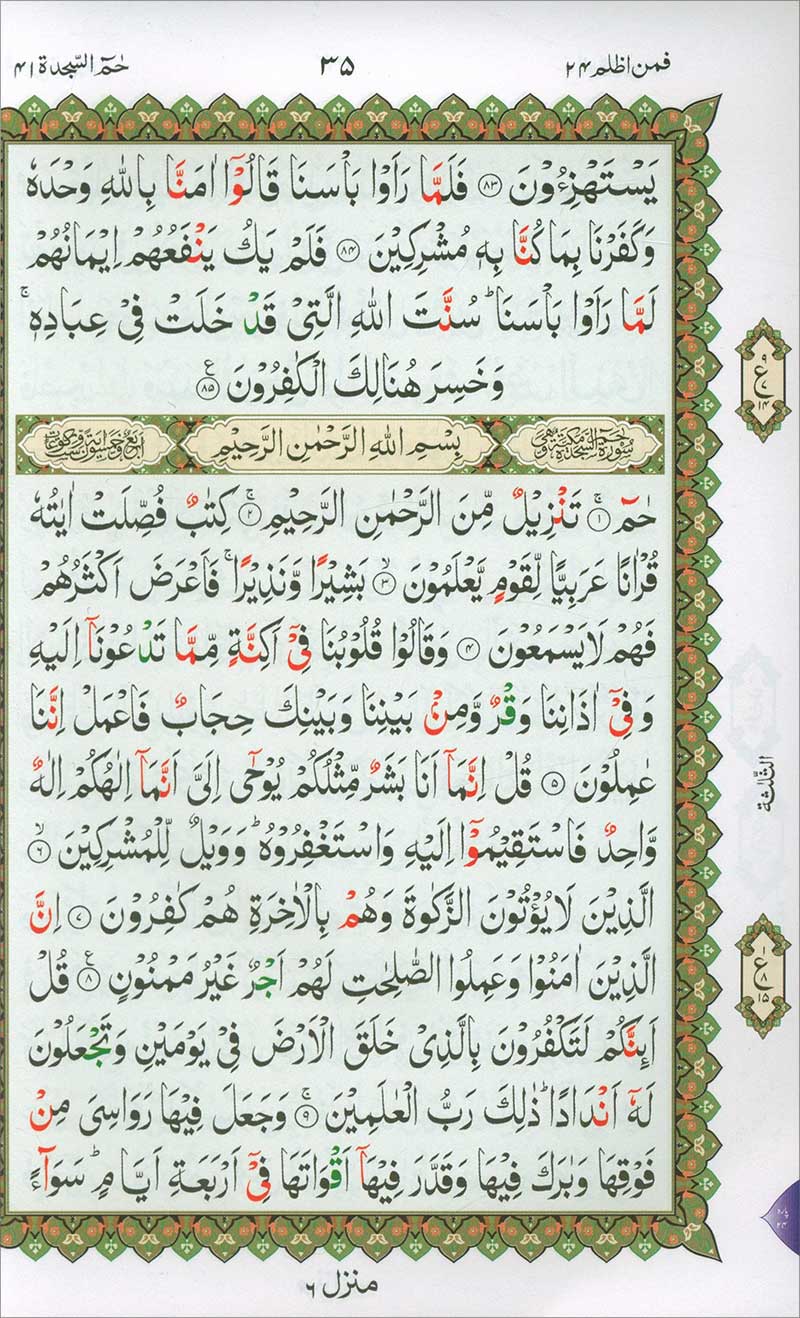 فمن اظلم ٢٤
٣٥
حٰمٓ السّجدة ٤١
يَسْتَهْزِءُوْنَ ﴿٨٣﴾ فَلَمَّا رَاَوْا بَاْسَنَا قَالُوْٓا اٰمَنَّا بِاللّٰهِ وَحْدَهٗ
وَكَفَرْنَا بِمَا كُنَّا بِهٖ مُشْرِكِيْنَ ﴿٨٤﴾ فَلَمْ يَكُ يَنْفَعُهُمْ اِيْمَانُهُمْ
لَمَّا رَاَوْا بَاْسَنَا ؕ سُنَّتَ اللّٰهِ الَّتِيْ قَدْ خَلَتْ فِيْ عِبَادِهٖ ۚ
وَخَسِرَ هُنَالِكَ الْكٰفِرُوْنَ ﴿٨٥﴾ ع
بِسْمِ اللّٰهِ الرَّحْمٰنِ الرَّحِيْمِ
حٰمٓ ۚ﴿١﴾ تَنْزِيْلٌ مِّنَ الرَّحْمٰنِ الرَّحِيْمِ ۚ﴿٢﴾ كِتٰبٌ فُصِّلَتْ اٰيٰتُهٗ
قُرْاٰنًا عَرَبِيًّا لِّقَوْمٍ يَّعْلَمُوْنَ ۙ﴿٣﴾ بَشِيْرًا وَّنَذِيْرًا ۚ فَاَعْرَضَ اَكْثَرُهُمْ
فَهُمْ لَا يَسْمَعُوْنَ ﴿٤﴾ وَقَالُوْا قُلُوْبُنَا فِيْٓ اَكِنَّةٍ مِّمَّا تَدْعُوْنَآ اِلَيْهِ
وَفِيْٓ اٰذَانِنَا وَقْرٌ وَّمِنْۢ بَيْنِنَا وَبَيْنِكَ حِجَابٌ فَاعْمَلْ اِنَّنَا
عٰمِلُوْنَ ﴿٥﴾ قُلْ اِنَّمَآ اَنَا بَشَرٌ مِّثْلُكُمْ يُوْحٰٓى اِلَيَّ اَنَّمَآ اِلٰهُكُمْ اِلٰهٌ
وَّاحِدٌ فَاسْتَقِيْمُوْٓا اِلَيْهِ وَاسْتَغْفِرُوْهُ ؕ وَوَيْلٌ لِّلْمُشْرِكِيْنَ ۙ﴿٦﴾
الَّذِيْنَ لَا يُؤْتُوْنَ الزَّكٰوةَ وَهُمْ بِالْاٰخِرَةِ هُمْ كٰفِرُوْنَ ﴿٧﴾ اِنَّ
الَّذِيْنَ اٰمَنُوْا وَعَمِلُوا الصّٰلِحٰتِ لَهُمْ اَجْرٌ غَيْرُ مَمْنُوْنٍ ﴿٨﴾ ع قُلْ
اَئِنَّكُمْ لَتَكْفُرُوْنَ بِالَّذِيْ خَلَقَ الْاَرْضَ فِيْ يَوْمَيْنِ وَتَجْعَلُوْنَ
لَهٗٓ اَنْدَادًا ؕ ذٰلِكَ رَبُّ الْعٰلَمِيْنَ ۚ﴿٩﴾ وَجَعَلَ فِيْهَا رَوَاسِيَ مِنْ
فَوْقِهَا وَبٰرَكَ فِيْهَا وَقَدَّرَ فِيْهَآ اَقْوَاتَهَا فِيْٓ اَرْبَعَةِ اَيَّامٍ ؕ سَوَآءً
الثلٰثة
ع
ع
پاره ٢٤
منزل ٦